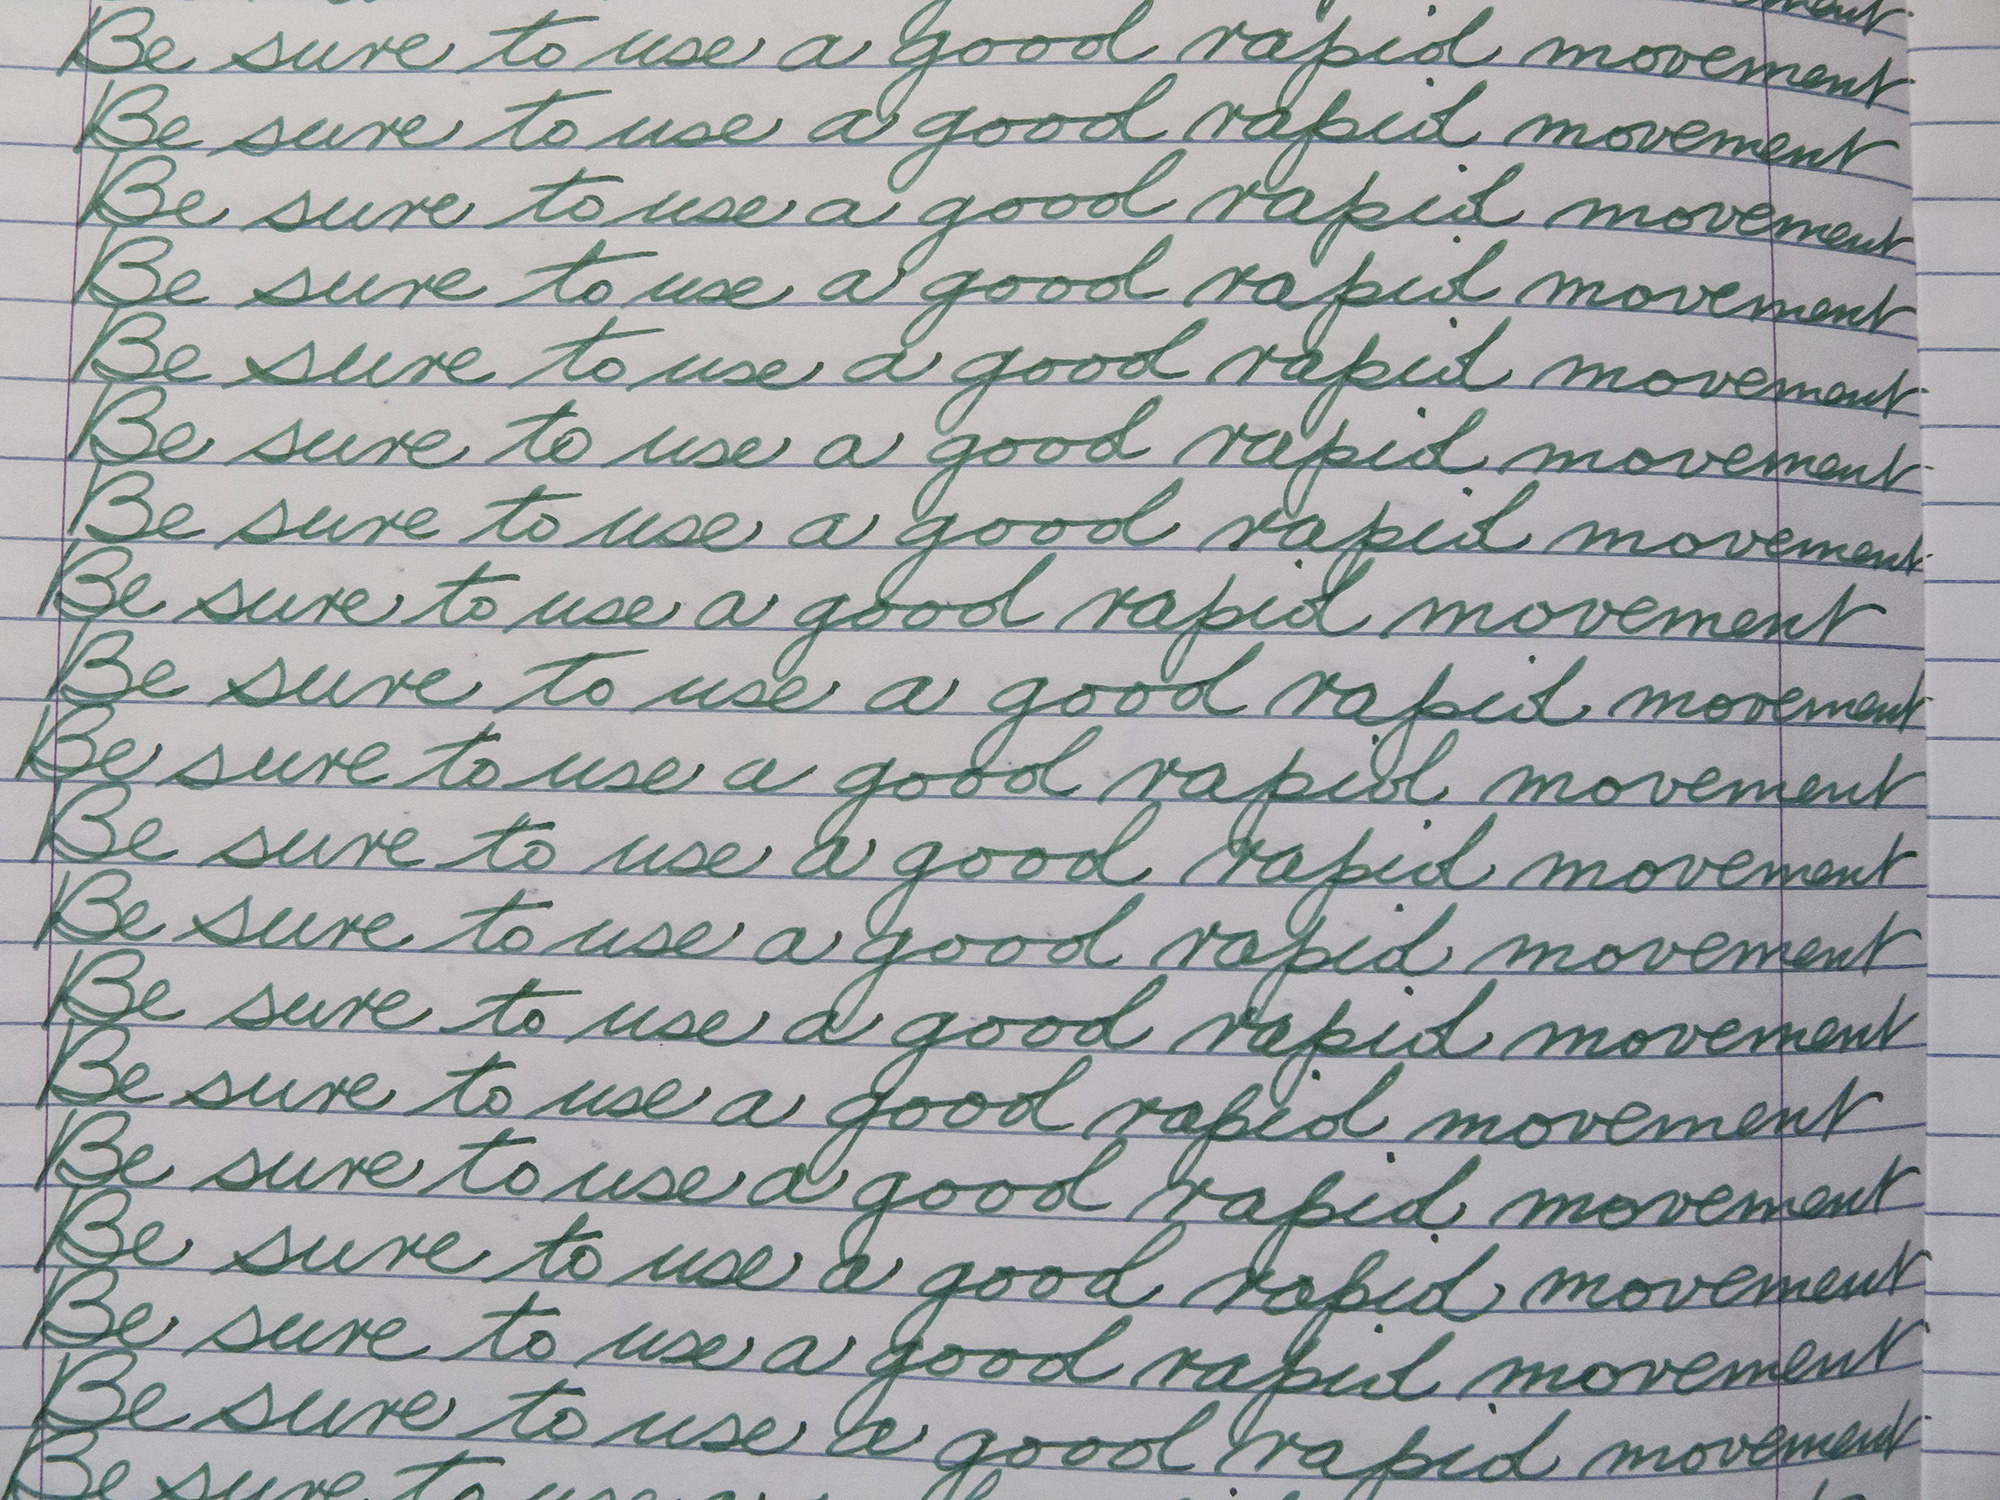 Be sure to use a good rapid movement
Be sure to use a good rapid movement
Be sure to use a good rapid movement
Be sure to use a good rapid movement
Be sure to use a good rapid movement
Be sure to use a good rapid movement
Be sure to use a good rapid movement
Be sure to use a good rapid movement
Be sure to use a good rapid movement
Be sure to use a good rapid movement
Be sure to use a good rapid movement
Be sure to use a good rapid movement
Be sure to use a good rapid movement
Be sure to use a good rapid movement
Be sure to use a good rapid movement
Be sure to use a good rapid movement
Be sure to use a good rapid movement
Be sure to use a good rapid movement
Be sure to use